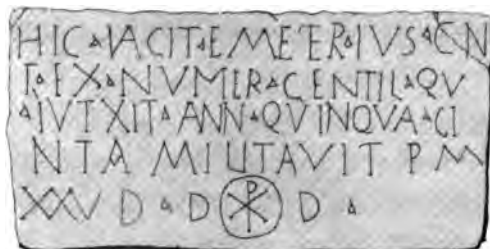 HIC ▵ IACIT ▵ EMETER ▵ IVS ▵ CN
T ▵ EX ▵ NVMER ▵ CENTIL ▵ QV
▵ IVTXIT ▵ ANN ▵ QVINQVA ▵ CI
NTA MIUTAVIT P M
XXV D ▵ D ☧ D ▵